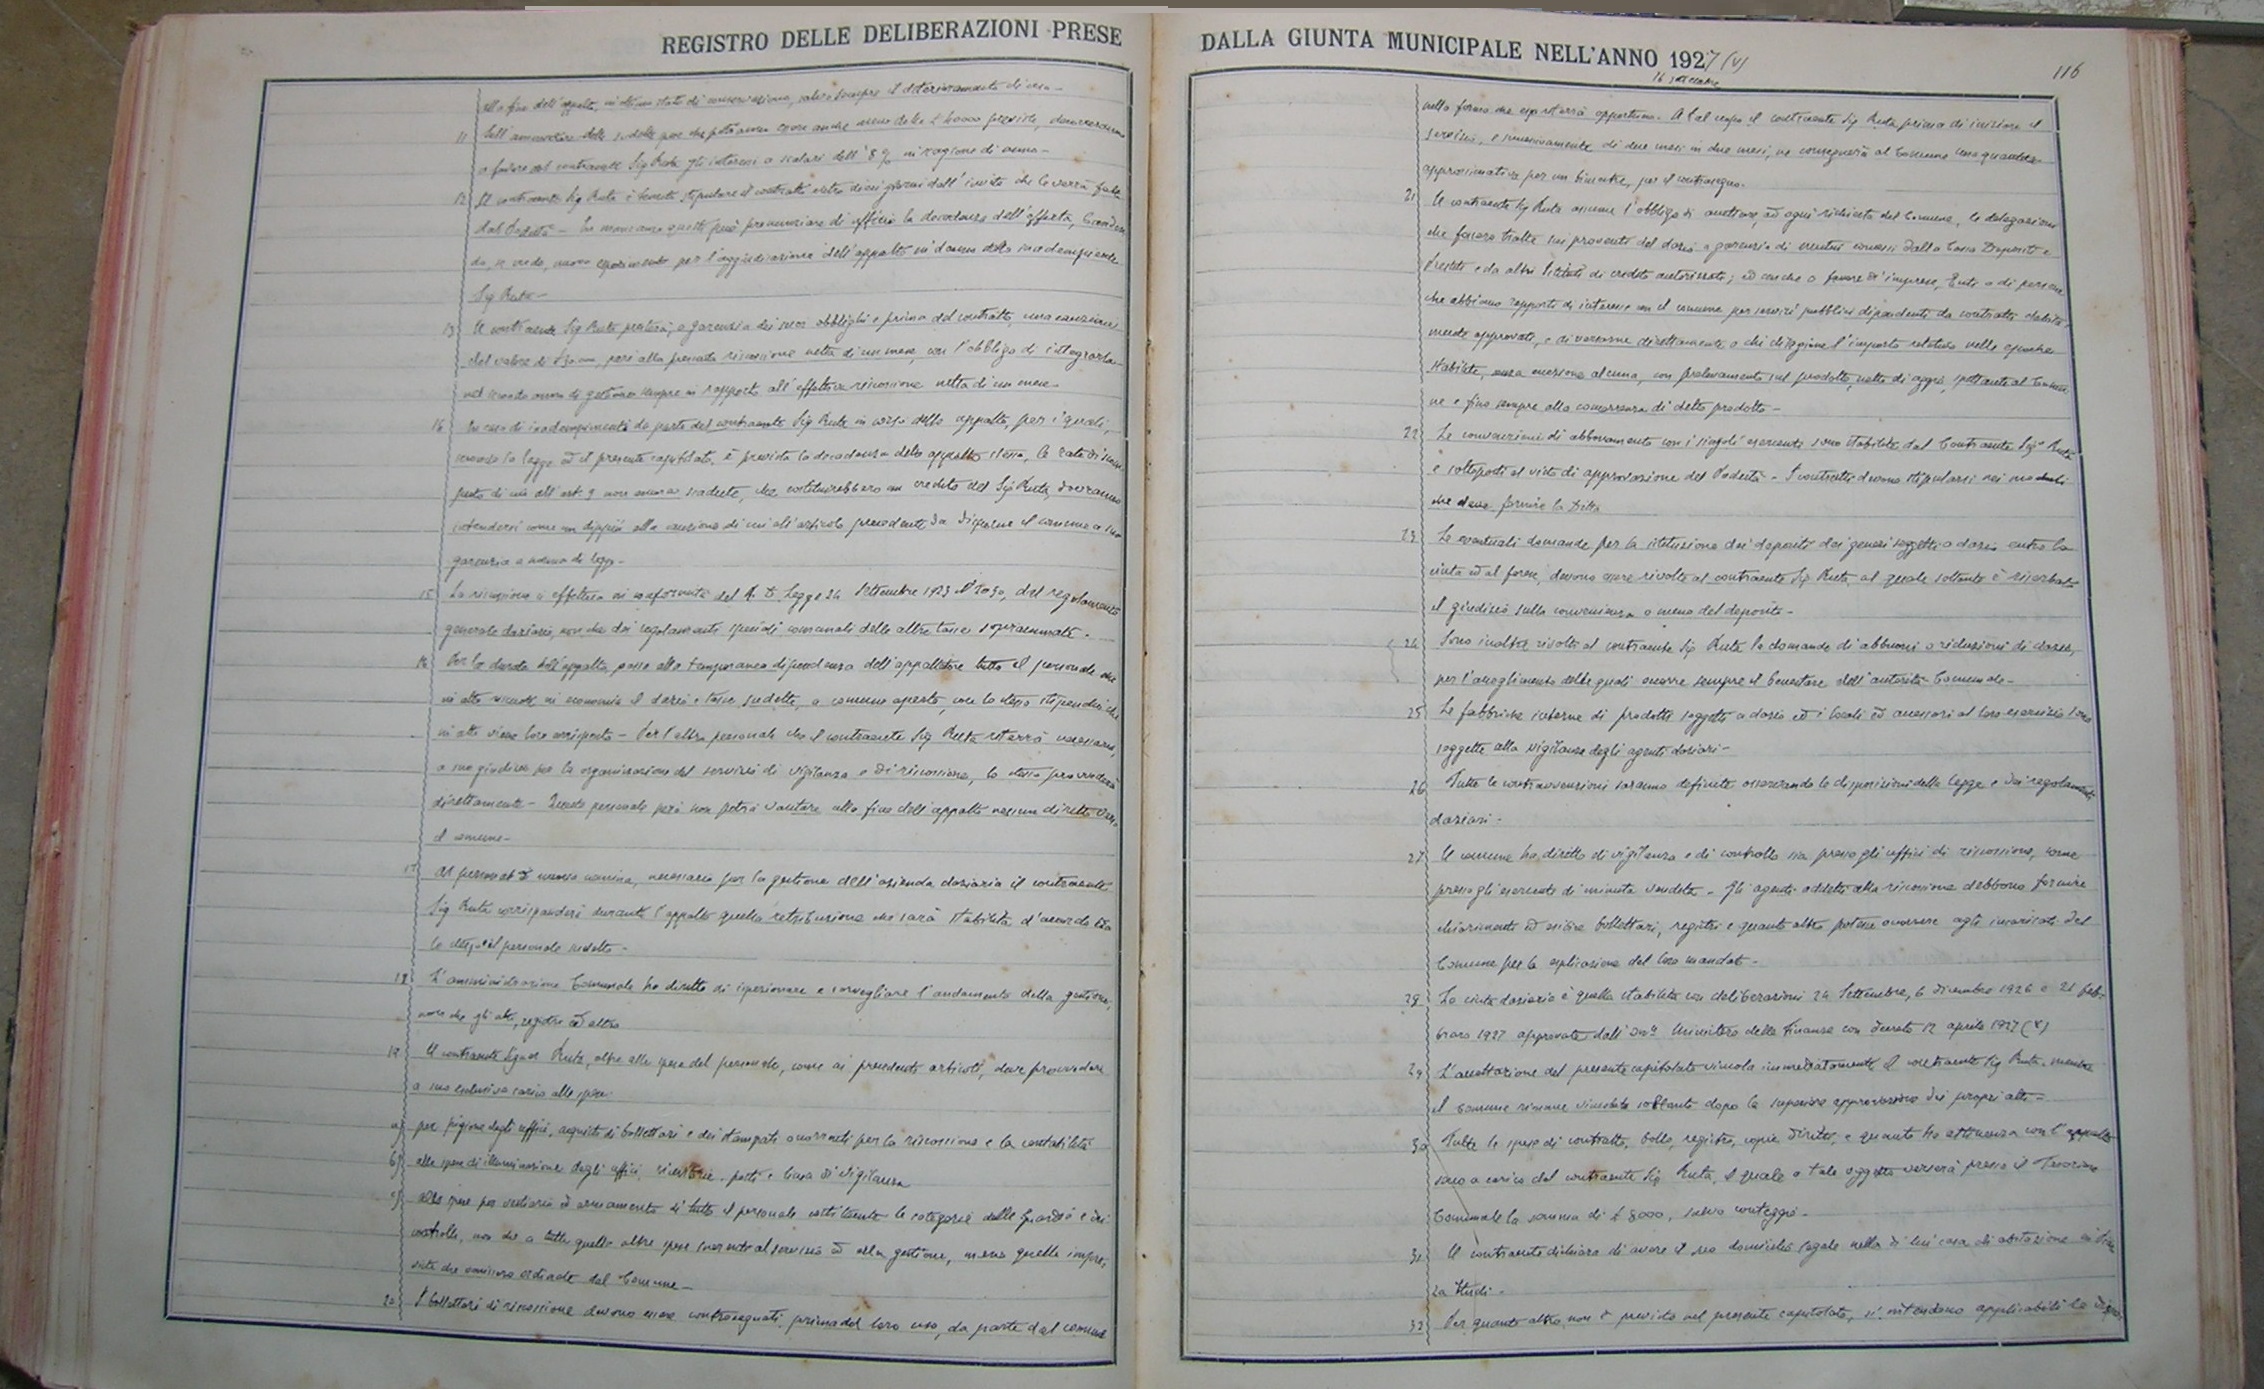 REGISTRO DELLE DELIBERAZIONI PRESE
alla fine dell'appalto, in ottimo stato di conservazione, salvo sempre il deterioramento di uso -
11 Sull'ammontare delle suddette
a favore del contraente Sig Ruta gli interessi a scalari dell'8% in ragione di anno -
12 Il contraente Sig Ruta è tenuto stipulare il contratto entro dieci giorni dall'invito che le verrà fatto
dal Podestà - In mancanza questi può pronunziare di ufficio la decadenza dell'offerta,
do, se crede, nuovo esperimento per l'aggiudicazione dell'appalto in danno dello inadempiente
Sig Ruta -
13 Il contraente Sig Ruta presterà, a garanzia dei suoi obblighi e prima del contratto, una cauzione
del valore di pari alla presunta riscossione netta di un mese con l'obbligo di integrarla
nel secondo anno di gestione sempre in rapporto all'effettiva riscossione netta di un mese -
14 In caso di inadempimenti da parte del contraente Sig Ruta in corso dello appalto, per i quali,
secondo la legge ed il presente capitolato, è prevista la decadenza dello appalto stesso, le rate di
posto di cui all'art. 9 non ancora scadute, che costituirebbero un credito del Sig Ruta, dovranno
intendersi come un dippiù alla cauzione di cui all'articolo precedente da disporne il comune a sua
garanzia a norma di legge -
15 La riscossione si effettua in conformità del R. D. Legge 24 Settembre 1923 N 2030, del regolamento
generale daziario, non che dei regolamenti speciali comunali delle altre tasse sopraccennate -
16 Per la durata dell'appalto, passa alla temporanea dipendenza dell'appaltatore tutto il personale che
in atto riscuote in economia il dazio e tasse suddette, a comune aperto, con lo stesso stipendio che
in atto viene loro corrisposto - Per l'altro personale che il contraente Sig Ruta riterrà necessario,
a suo giudizio per la organizzazione del servizio di vigilanza e di riscossione, lo stesso provvederà
direttamente - Questo personale però non potrà vantare alla fine dell'appalto nessun diritto verso
il comune -
17 Al personale di nuova nomina, necessario per la gestione dell'azienda daziaria il contraente
Sig Ruta corrisponderà durante l'appalto quella retribuzione che sarà stabilita d'accordo tra
lo stesso e il personale suddetto -
18 L'amministrazione Comunale ha diritto di ispezionare e sorvegliare l'andamento della gestione,
non che gli atti, registri ed altro
19 Il contraente Signor Ruta, oltre alle spese del personale, come ai precedenti articoli, deve provvedere
a suo esclusivo carico alle spese:
a) per pigione degli uffici, acquisto di bollettari e dei stampati occorrenti per la riscossione e la contabilità
b) alle spese di illuminazione degli uffici, ricevitorie, posti e linea di vigilanza
c) alle spese per vestiario ed armamento di tutto il personale costituente le categorie delle guardie e dei
controlli, non che a tutte quelle altre spese inerenti al servizio ed alla gestione, meno quelle impre,
viste che venissero ordinate dal Comune -
20 I bollettari di riscossione devono essere contrassegnati, prima del loro uso, da parte del comune
DALLA GIUNTA MUNICIPALE NELL'ANNO 1927 (V)
116
nella forma che esso riterrà opportuno - A tal uopo il contraente Sig Ruta, prima di iniziare il
servizio, e successivamente di due mesi in due mesi, ne consegnerà al Comune una quantità
approssimativa per un bimestre, per il contrassegno -
21 Il contraente Sig Ruta assume l'obbligo di accettare, ad ogni richiesta del Comune, le delegazioni
che fossero tratte sui proventi del dazio a garenzia di mutui concessi dalla Cassa Depositi e
Prestiti e da altri Istituti di credito autorizzati; ed anche a favore di imprese, Enti o di persone
che abbiano rapporti di interesse con il comune per servizi pubblici dipendenti da contratti debita,
mente approvati, e di versarne direttamente a chi di ragione l'importo relativo nelle epoche
stabilite, senza eccezione alcuna, con prelevamento sul prodotto, netto di aggio, spettante al Comu
ne e fino sempre alla concorrenza di detto prodotto -
22 Le convenzioni di abbonamento con i singoli esercenti sono stabilite dal Contraente Sigr Ruta
e sottoposti al visto di approvazione del Podestà - I contratti devono stipularsi nei moduli
che deve fornire la Ditta
23 Le eventuali domande per la istituzione dei depositi dei generi soggetti a dazio entro la
cinta ed al forese, devono essere rivolte al contraente Sig Ruta, al quale soltanto è riserbato
il giudizio sulla convenienza o meno del deposito -
24 Sono inoltre rivolte al contraente Sig Ruta le domande di abbuoni o riduzioni di dazio,
per l'accoglimento delle quali occorre sempre il benestare dell'autorità Comunale -
25 Le fabbriche interne di prodotti soggetti a dazio ed i locali ed accessori al loro esercizio sono
soggette alla vigilanza degli agenti daziari -
26 Tutte le contravvenzioni saranno definite osservando le disposizioni della legge e dei regolamenti
daziari -
27 Il comune ha diritto di vigilanza e di controllo sia presso gli uffici di riscossione, come
presso gli esercenti di minuta vendita - Gli agenti addetti alla riscossione debbono fornire
chiarimenti ed esibire bollettari, registri e quanto altro potesse occorrere agli incaricati del
Comune per la esplicazione del loro mandato -
28 La cinta daziaria è quella stabilita con deliberazioni 24 Settembre, 6 Dicembre 1926 e 21 feb-
braio 1927 approvate dall'On. Ministero delle Finanze con decreto 12 aprile 1927 (V)
29 L'accettazione del presente capitolato vincola immediatamente il contraente Sig Ruta, mentre
il comune rimane vincolato soltanto dopo la superiore approvazione dei propri atti -
30 Tutte le spese di contratto, bollo, registro, copie, diritti, e quanto ha attinenza con l'appalto
sono a carico del contraente Sig Ruta, il quale a tale oggetto verserà presso il Tesoriere
Comunale la somma di £ 8000, salvo conteggio -
31 Il contraente dichiara di avere il suo domicilio legale nella di lui casa di abitazione in
za Studi -
32 Per quanto altro non è previsto nel presente capitolato, si intendono applicabili le